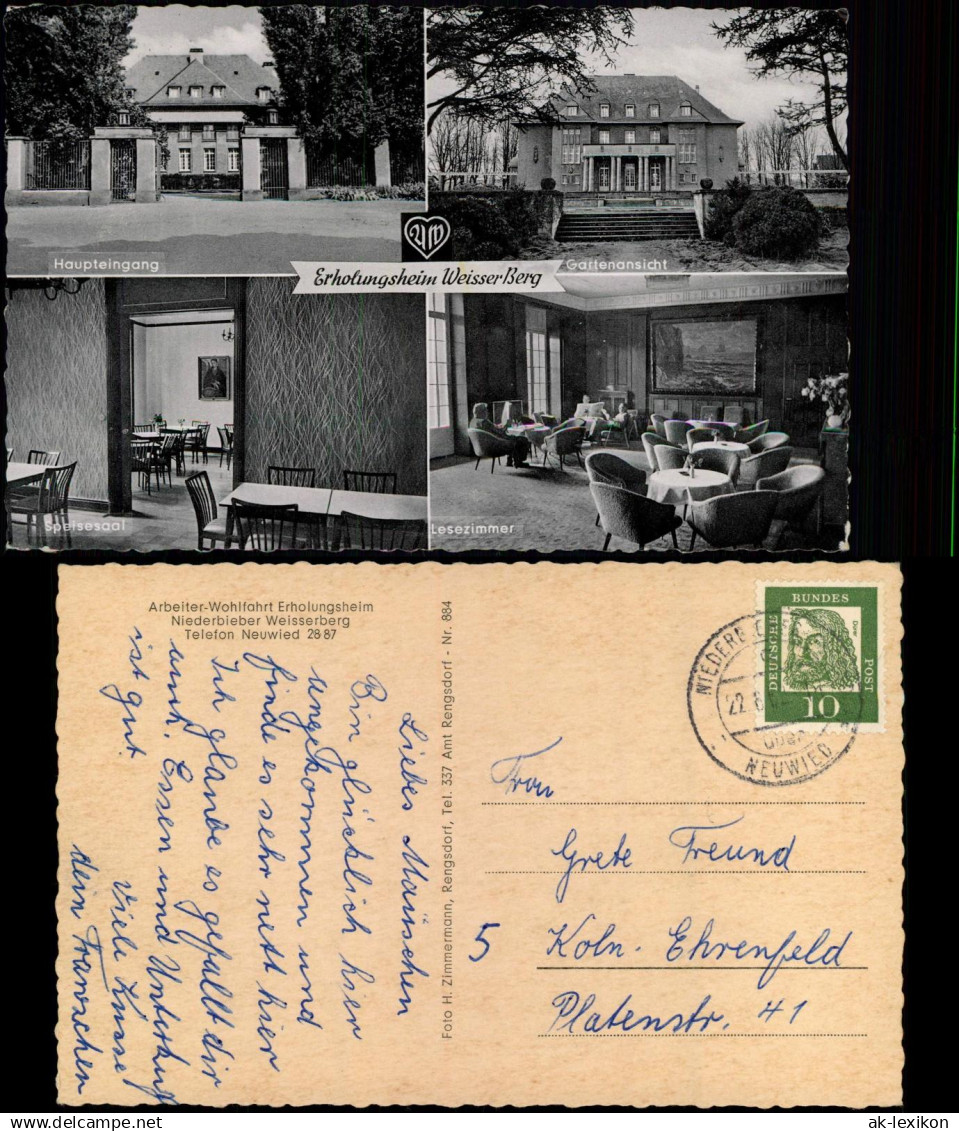 Haupteingang
AW
Gartenansicht
Erholungsheim Weisser Berg
Speisesaal
Lesezimmer
Arbeiter-Wohlfahrt Erholungsheim
Niederbieber Weisserberg
Telefon Neuwied 28 87
Liebes Mäuschen
Bin glücklich hier
ungekommen und
finde es sehr nett hier
Ich glaube es gefällt dir
auch. Essen und Unterkunft
ist gut.
Viele Küsse
dein Frauschen
Foto H. Zimmermann, Rengsdorf, Tel. 337 Amt Rengsdorf - Nr. 884
NIEDERB
22.8
NEUWIED
DEUTSCHE
BUNDES
POST
Dürer
10
Frau
Grete Freund
5
Koln- Ehrenfeld
Platenstr. 41
ak-lexikon